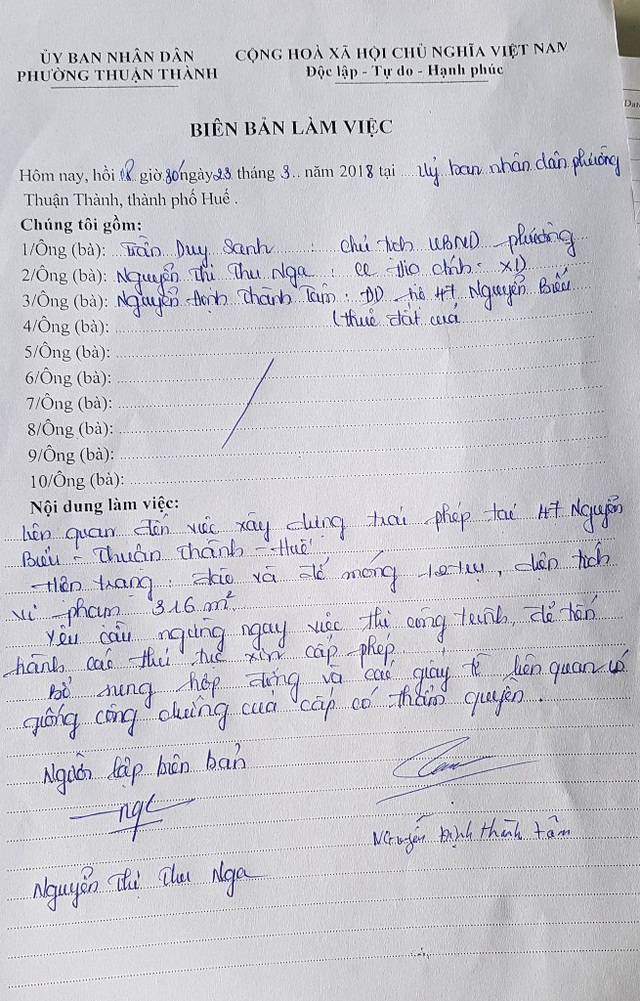 ỦY BAN NHÂN DÂN
PHƯỜNG THUẬN THÀNH
CỘNG HOÀ XÃ HỘI CHỦ NGHĨA VIỆT NAM
Độc lập - Tự do - Hạnh phúc
BIÊN BẢN LÀM VIỆC
Hôm nay, hồi giờ 30' ngày 23 tháng 3.. năm 2018 tại ....Uỷ ban nhân dân phường
Thuận Thành, thành phố Huế .
Chúng tôi gồm:
1/Ông (bà): Trần Duy Sanh : Chủ tịch UBND phường
2/Ông (bà): Nguyễn Thị Thu Nga : CC địa chính - XD
3/Ông (bà): Nguyễn Đình Thành Tâm : ĐD hộ 47 Nguyễn Biểu
4/Ông (bà): (thuê đất của
5/Ông (bà):
6/Ông (bà):
7/Ông (bà):
8/Ông (bà):
9/Ông (bà):
10/Ông (bà):
Nội dung làm việc:
Liên quan đến việc xây dựng trái phép tại 47 Nguyễn
Biểu - Thuận Thành - Huế
Hiện trạng : đào và đổ móng , diện tích
vi phạm 316 m².
Yêu cầu ngừng ngay việc thi công trình, để tiến
hành các thủ tục xin cấp phép.
Bổ sung hợp đồng và các giấy tờ liên quan có
giống công chứng của cấp có thẩm quyền.
Người lập biên bản
Nguyễn Đình Thành Tâm
Nguyễn Thị Thu Nga